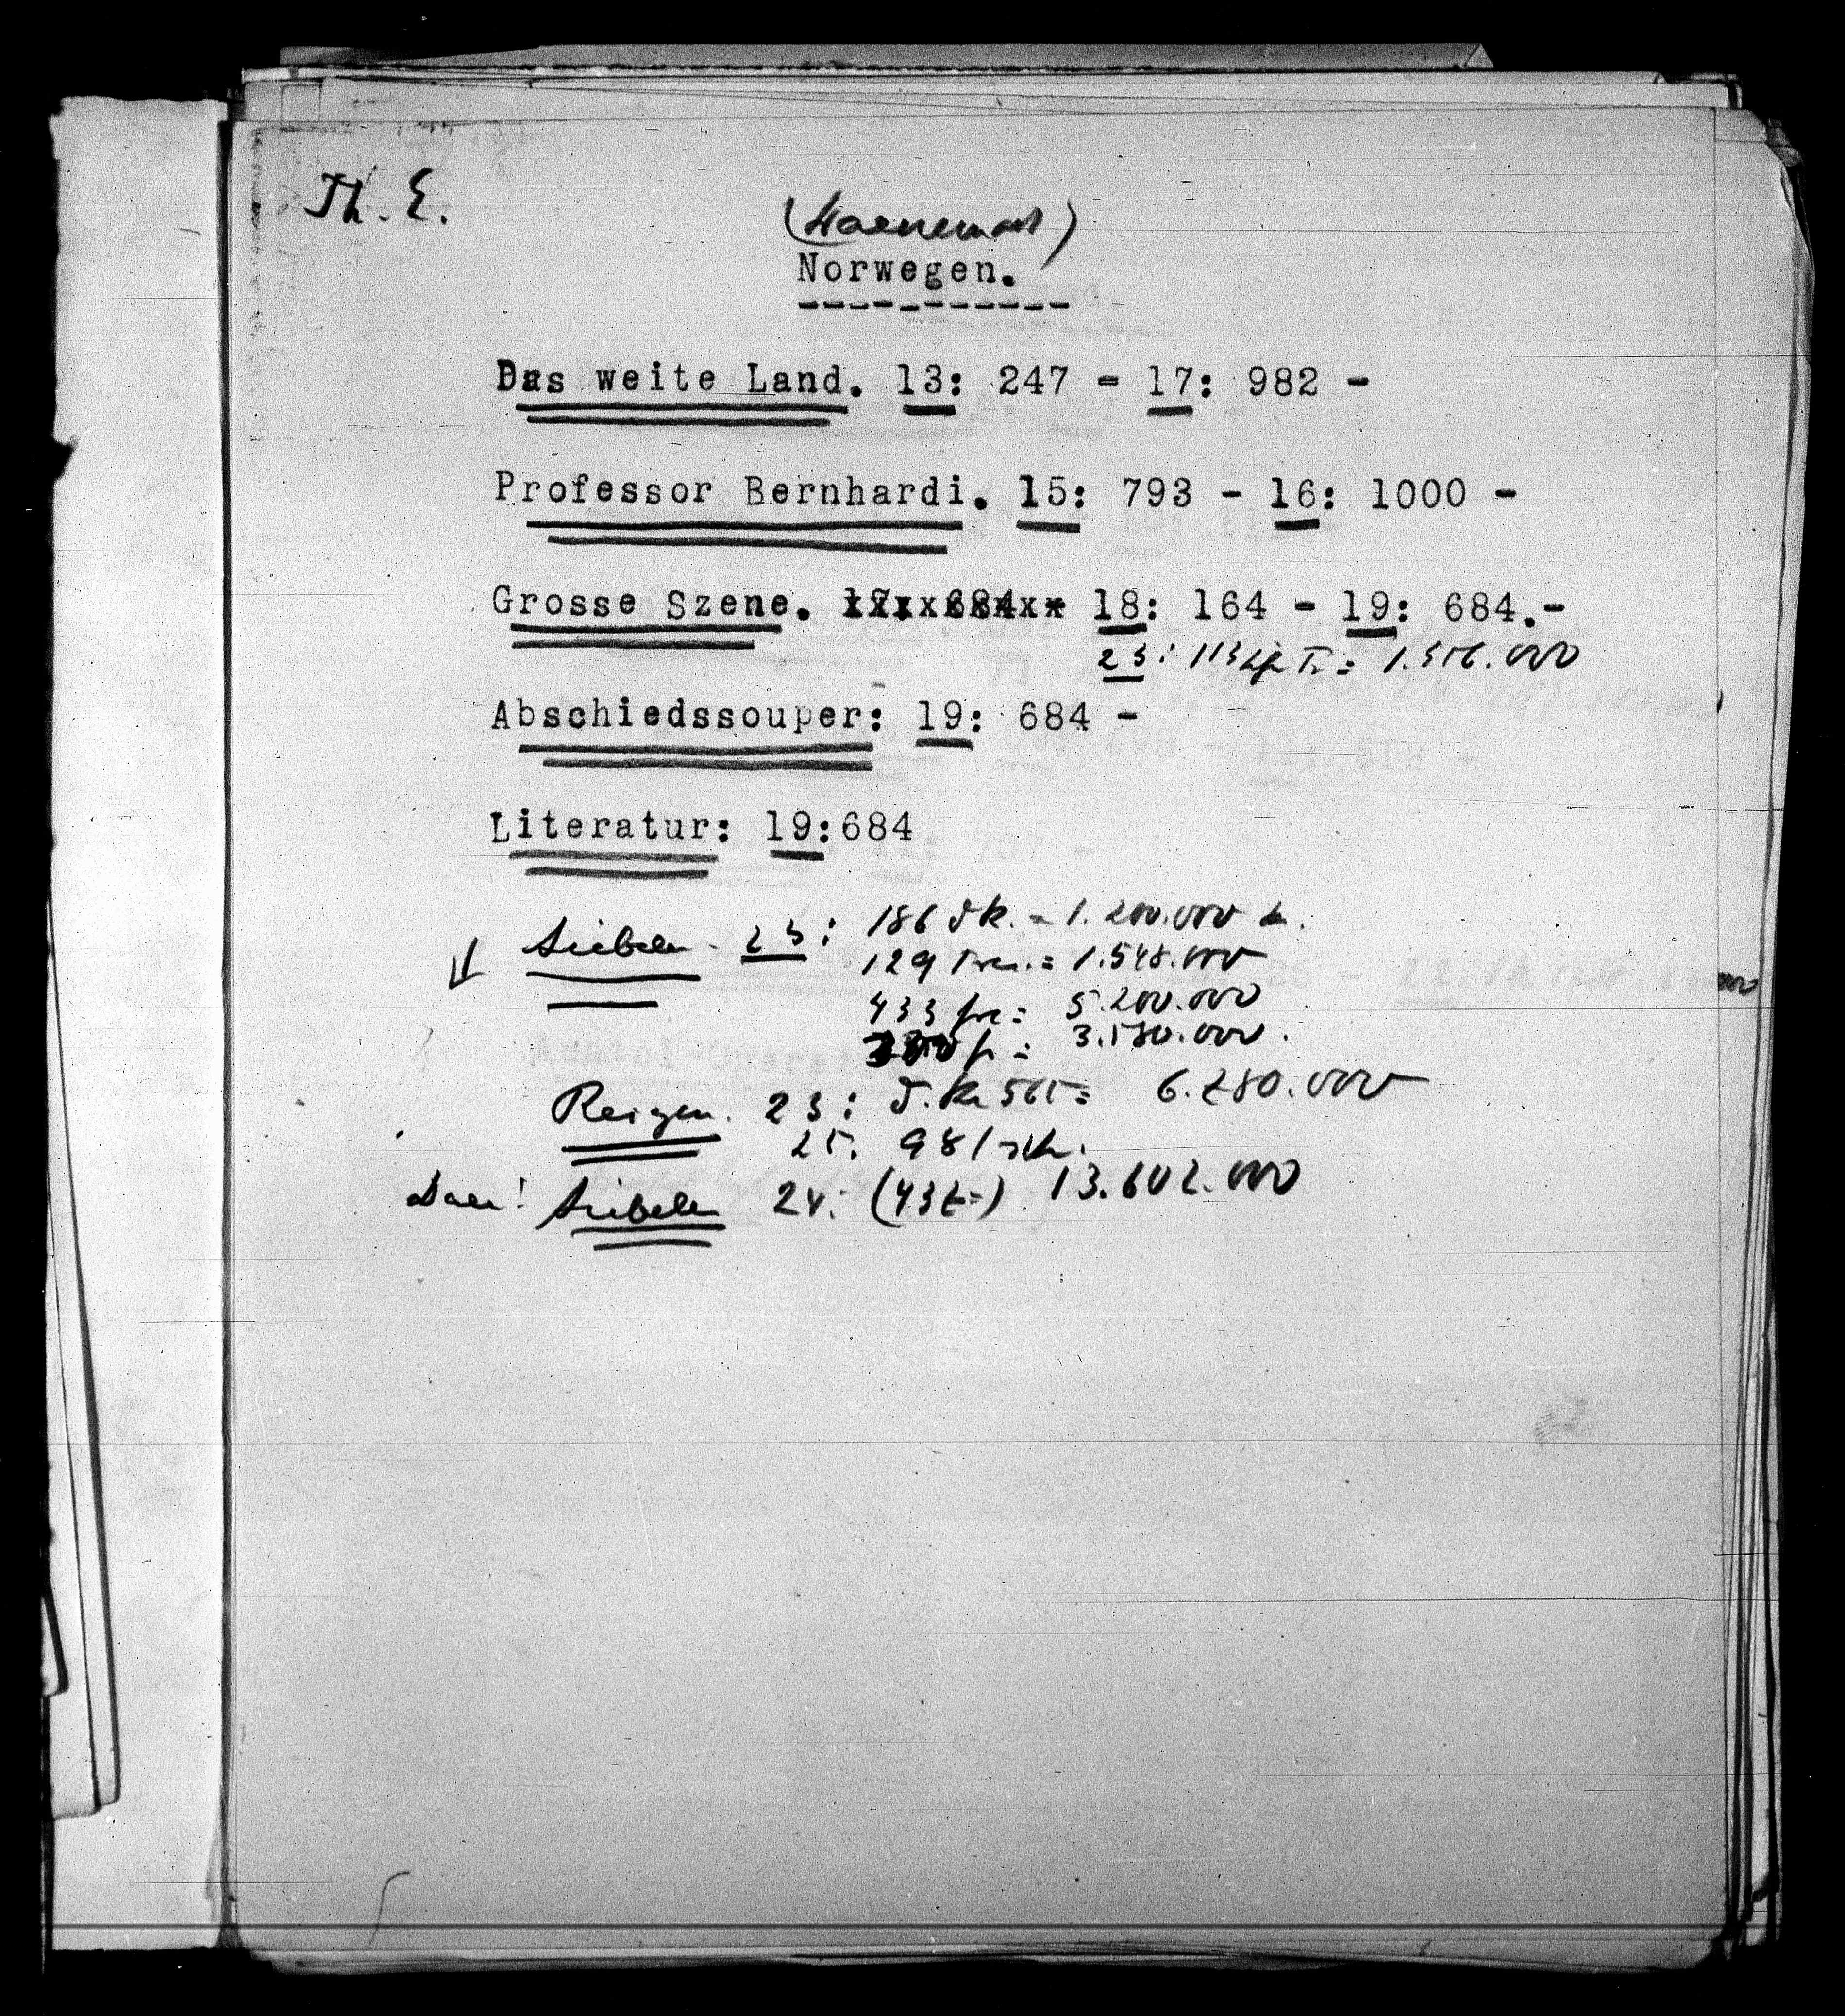 Th. E.
(Daenemark)
Norwegen.
-----------
Das weite Land. 13: 247 - 17: 982 -
Professor Bernhardi. 15: 793 - 16: 1000 -
Grosse Szene. 18: 164 - 19: 684.-
23: 113 = 1.356.000
Abschiedssouper: 19: 684 -
Literatur: 19:684
Liebelei 23: 186 d k. = 1.200.000
129 = 1.548.000
433 = 5.200.000
= 3.580.000.
Reigen. 23: d. Kr 565 = 6.780.000
25. 98
Liebelei 24: 13.602.000